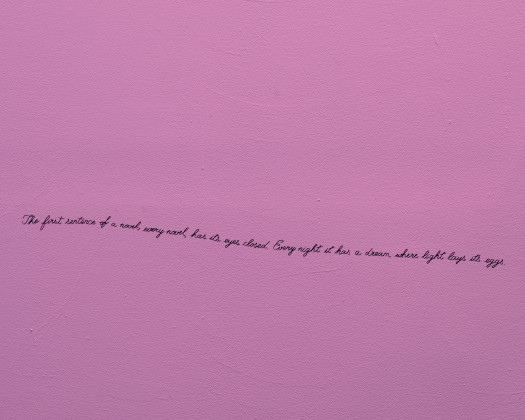 The first sentence of a novel, every novel, has its eyes closed. Every night it has a dream where light lays its eggs.